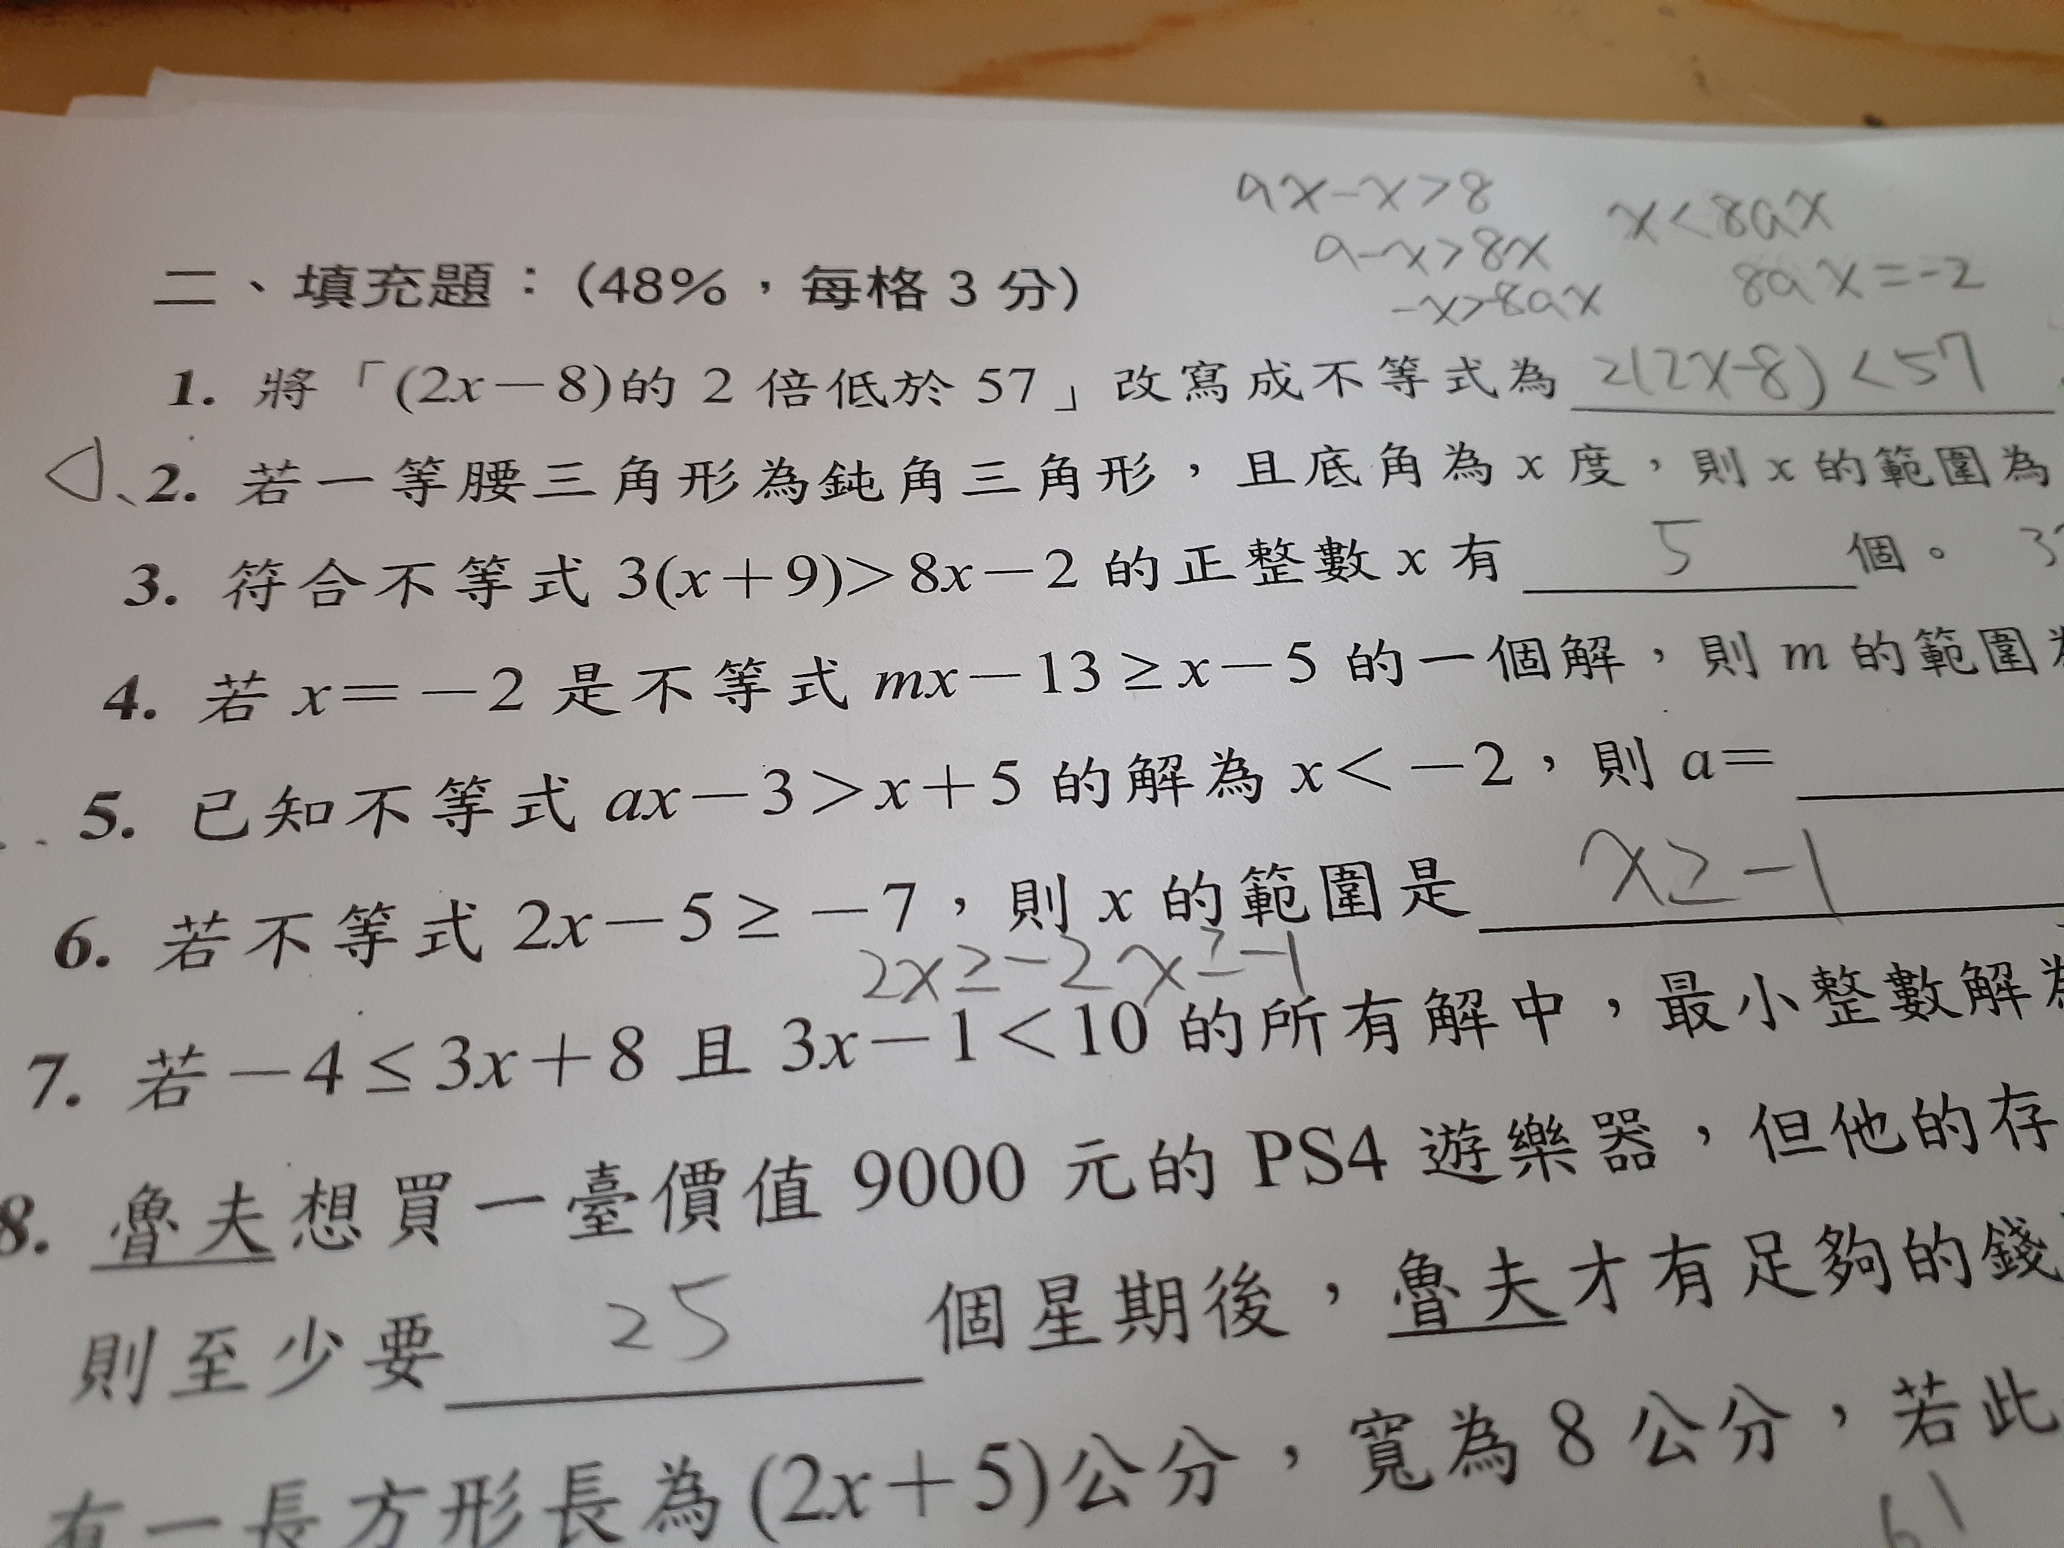 ax-x>8
x<8ax
a-x>8x
8ax=-2
-x>8ax
二、填充題：(48%，每格3分)
1. 將「(2x－8)的2倍低於57」改寫成不等式為 2(2x-8)<57
2. 若一等腰三角形為鈍角三角形，且底角為x度，則x的範圍為
3. 符合不等式3(x＋9)>8x－2的正整數x有 5 個。
4. 若x＝－2是不等式mx－13≥x－5的一個解，則m的範圍
5. 已知不等式ax－3>x＋5的解為x<－2，則a＝
6. 若不等式2x－5≥－7，則x的範圍是 x≥-1
2x≥-2 x≥-1
7. 若－4≤3x＋8且3x－1<10的所有解中，最小整數解
8. 魯夫想買一臺價值9000元的PS4遊樂器，但他的存
則至少要 25 個星期後，魯夫才有足夠的錢
有一長方形長為(2x＋5)公分，寬為8公分，若此
61